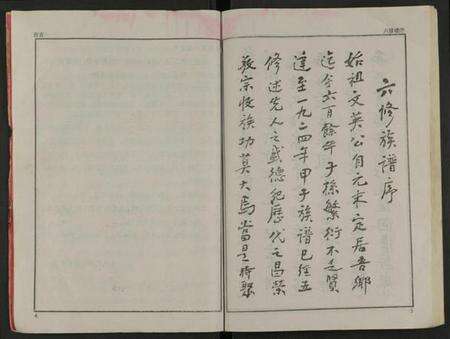 六修族譜序
始祖文英公自元末定居吾鄉
迄今六百餘年子孫繁衍不
達至一九二四年甲子族譜已經五
修述先人之盛德紀歷代之昌榮
敬宗收族功莫大焉當是時